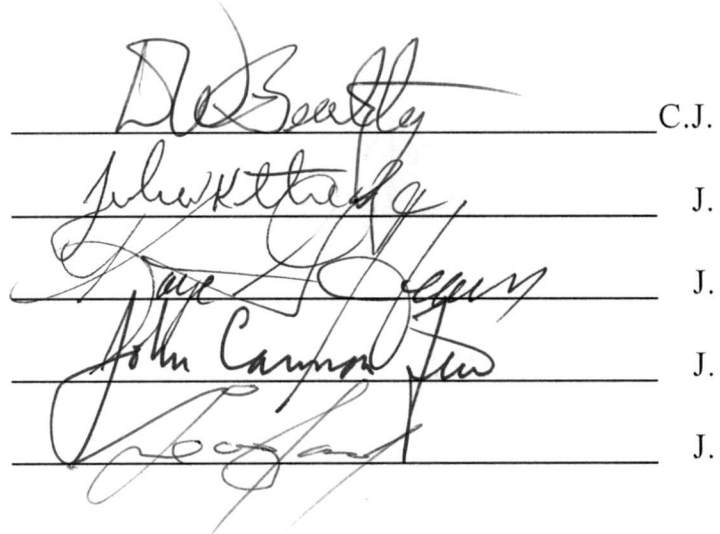 DW Beatty C.J.
John W Kittredge J.
Kaye G Hearn J.
John Cannon Few J.
J.